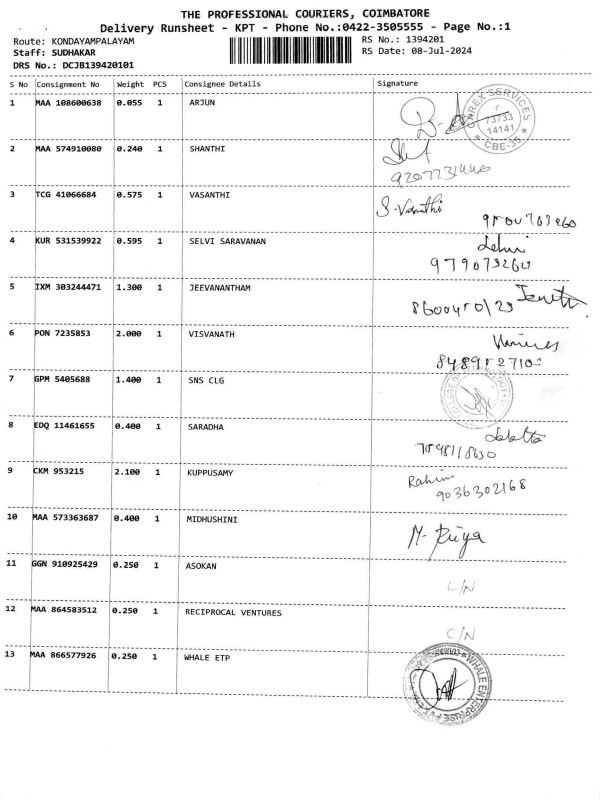 THE PROFESSIONAL COURIERS, COIMBATORE
Delivery Runsheet - KPT - Phone No.:0422-3505555 - Page No.:1
Route: KONDAYAMPALAYAM RS No.: 1394201
Staff: SUDHAKAR RS Date: 08-Jul-2024
DRS No.: DCJB139420101
S No Consignment No Weight PCS Consignee Details Signature
1 MAA 108600638 0.055 1 ARJUN
SERVICES
73733
14141
CBE-35
2 MAA 574910080 0.240 1 SHANTHI
3 TCG 41066684 0.575 1 VASANTHI S-Vasanthi
4 KUR 531539922 0.595 1 SELVI SARAVANAN Selvi
979073260
5 IXM 303244471 1.300 1 JEEVANANTHAM
6 PON 7235853 2.000 1 VISVANATH
7 GPM 5405688 1.400 1 SNS CLG
8 EDQ 11461655 0.400 1 SARADHA
9 CKM 953215 2.100 1 KUPPUSAMY
9036302168
10 MAA 573363687 0.400 1 MIDHUSHINI M-Priya
11 GGN 910925429 0.250 1 ASOKAN C/N
12 MAA 864583512 0.250 1 RECIPROCAL VENTURES C/N
13 MAA 866577926 0.250 1 WHALE ETP
WHALE ENTERPRISE PVT